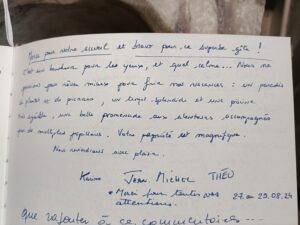 Merci pour votre accueil et bravo pour ce superbe gîte !
C'est un bonheur pour les yeux, et quel calme... Nous ne
pouvions pas rêver mieux pour finir nos vacances : un paradis
de plantes et de , un temps splendide et une piscine
très agréable, une belle promenade aux alentours accompagnés
par de multiples papillons. Votre propriété est magnifique.
Nous reviendrons avec plaisir.
Karine Jean-Michel THÉO
* Merci pour toutes vos 27 au 29.08.24
attentions.
Que rajouter à ce commentaire - - -